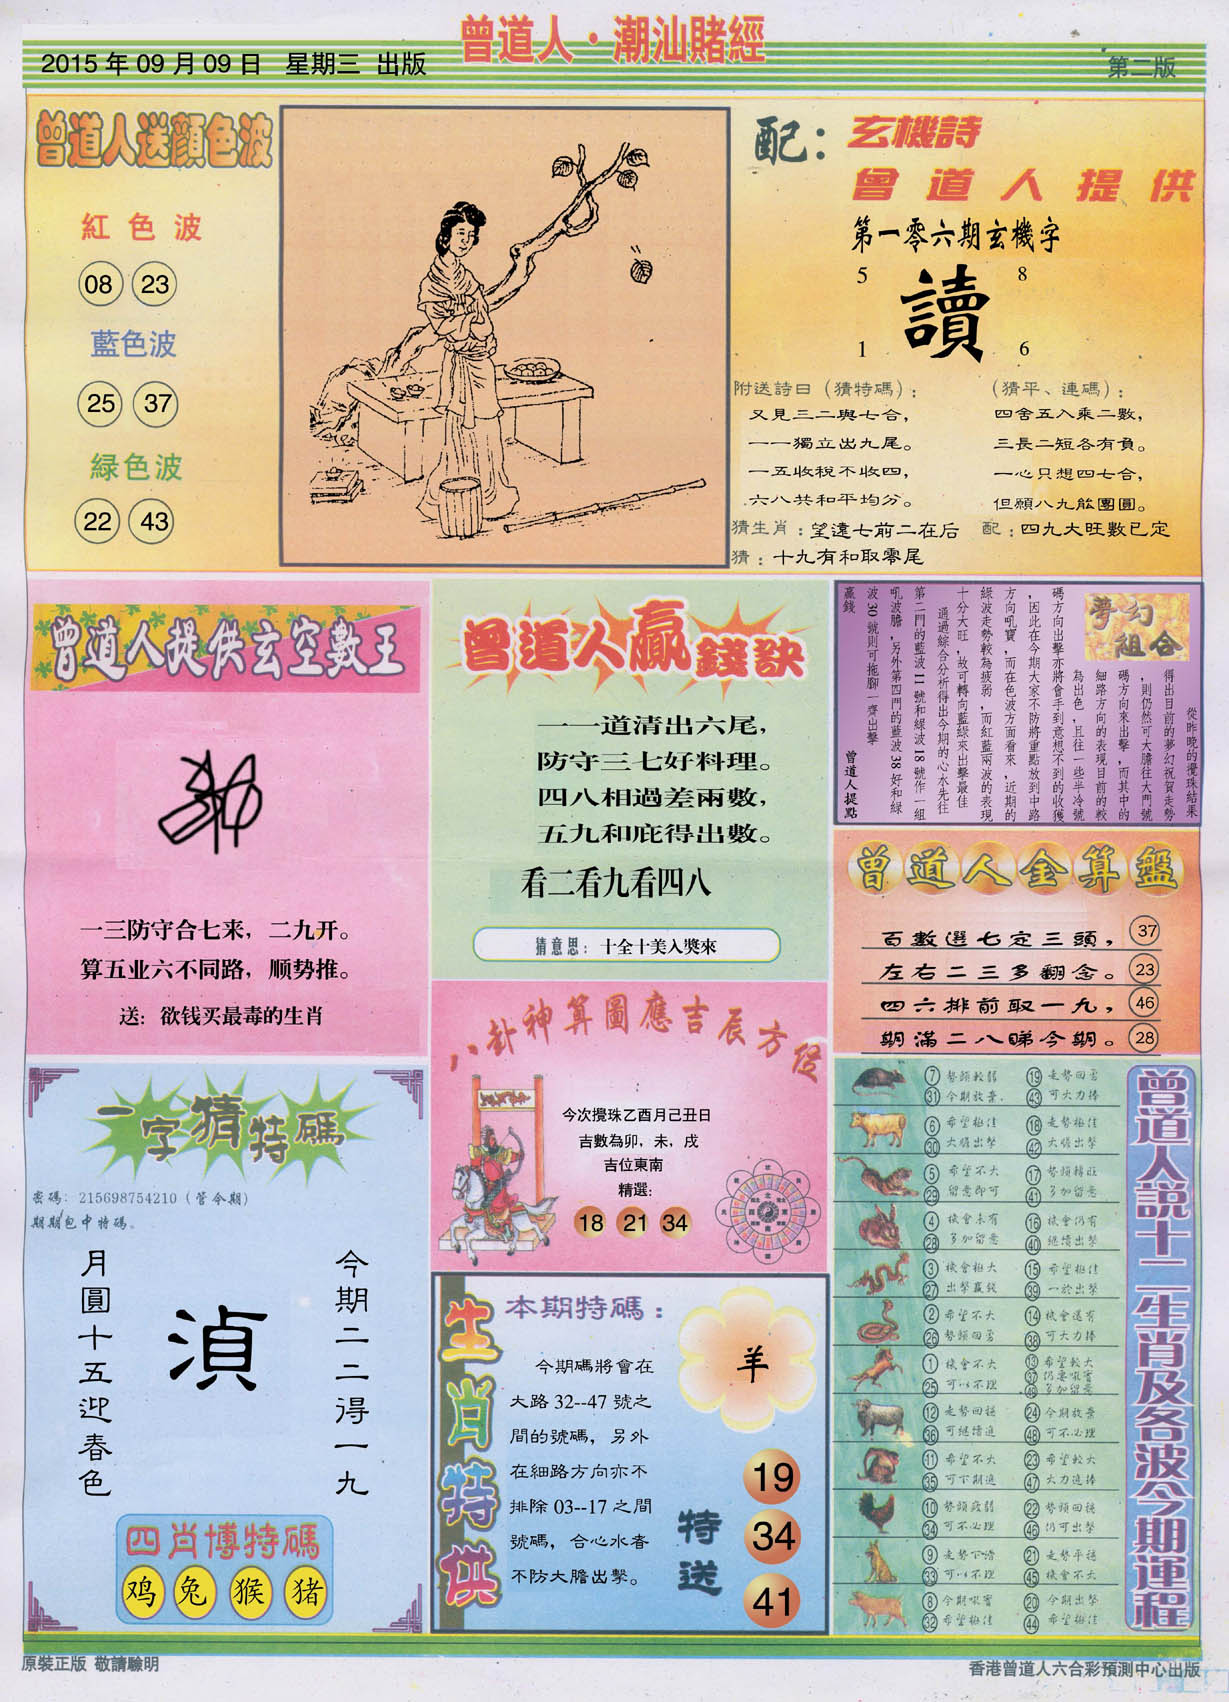 曾道人·潮汕賭經
2015 年 09 月 09 日 星期三 出版
第二版
曾道人送顏色波
紅色波
08 23
藍色波
25 37
緑色波
22 43
配：
玄機詩
曾道人提供
第一零六期玄機字
5 8
讀
1 6
附送詩曰（猜特碼）：
又見三二與七合，
一一獨立出九尾。
一五收稅不收四，
六八共和平均分。
（猜平、連碼）：
四舍五入乘二數，
三長二短各有負。
一心只想四七合，
但願八九能團圓。
猜生肖：望遠七前二在后
配：四九大旺數已定
猜：十九有和取零尾
曾道人提供玄空數王
一三防守合七来，二九开。
算五业六不同路，顺势推。
送：欲钱买最毒的生肖
曾道人贏錢訣
一一道清出六尾，
防守三七好料理。
四八相過差兩數，
五九和庇得出數。
看二看九看四八
猜意思：十全十美入獎來
夢幻組合
從昨晚的攪珠結果
得出目前的夢幻祝賀走勢
，則仍然可大膽往大門號
碼方向來出擊，而其中的
細路方向的表現目前的較
為出色，且往一些半冷號
碼方向出擊亦將會手到意想不到的收獲
，因此在今期大家不防將重點放到中路
方向吼寶，而在色波方面看來，近期的
綠波走勢較為疲弱，而紅藍兩波的表現
十分大旺，故可轉向藍綠來出擊最佳
通過綜合分析得出今期的心水先往
第二門的藍波 11 號和綠波 18 號作一組
吼波膽，另外第四門的藍波 38 好和綠
波 30 號則可拖腳一齊出擊
贏錢
曾道人提點
曾道人金算盤
百數選七定三頭， 37
左右二三多翻念。 23
四六排前取一九， 46
期滿二八睇今期。 28
一字猜特碼
密碼：215698754210（管今期）
期期包中特碼。
今期二二得一九
湞
月圓十五迎春色
四肖博特碼
鸡 兔 猴 猪
八卦神算圖應吉辰方位
今次攪珠乙酉月己丑日
吉數為卯，未，戌
吉位東南
精選：
18 21 34
生肖特供
本期特碼：
今期碼將會在
大路 32--47 號之
間的號碼，另外
在細路方向亦不
排除 03--17 之間
號碼，合心水者
不防大膽出擊。
羊
特送
19
34
41
曾道人説十二生肖及各波今期運程
7 勢頭較弱 19 走勢回勇
31 今期放棄 43 可大力捧
6 希望極佳 18 走勢極佳
30 大膽出擊 42 大膽出擊
5 希望不大 17 勢頭轉旺
29 留意即可 41 多加留意
4 機會未有 16 機會仍有
28 多加留意 40 繼續出擊
3 機會極大 15 希望極佳
27 出擊贏錢 39 一於出擊
2 希望不大 14 機會還有
26 勢頭回勇 38 可大力捧
1 機會不大 13 希望較大
25 可以不理 37 仍要吼實
49 多加留意
12 走勢回穩 24 今期放棄
36 可繼續追 48 可不必理
11 希望不大 23 希望較大
35 可下期追 47 大力追捧
10 勢頭疲弱 22 勢頭回穩
34 可不必理 46 仍可出擊
9 走勢下滑 21 走勢平穩
33 可以不理 45 機會不大
8 今期吼實 20 今期出擊
32 希望極佳 44 希望極佳
原裝正版 敬請驗明
香港曾道人六合彩預測中心出版